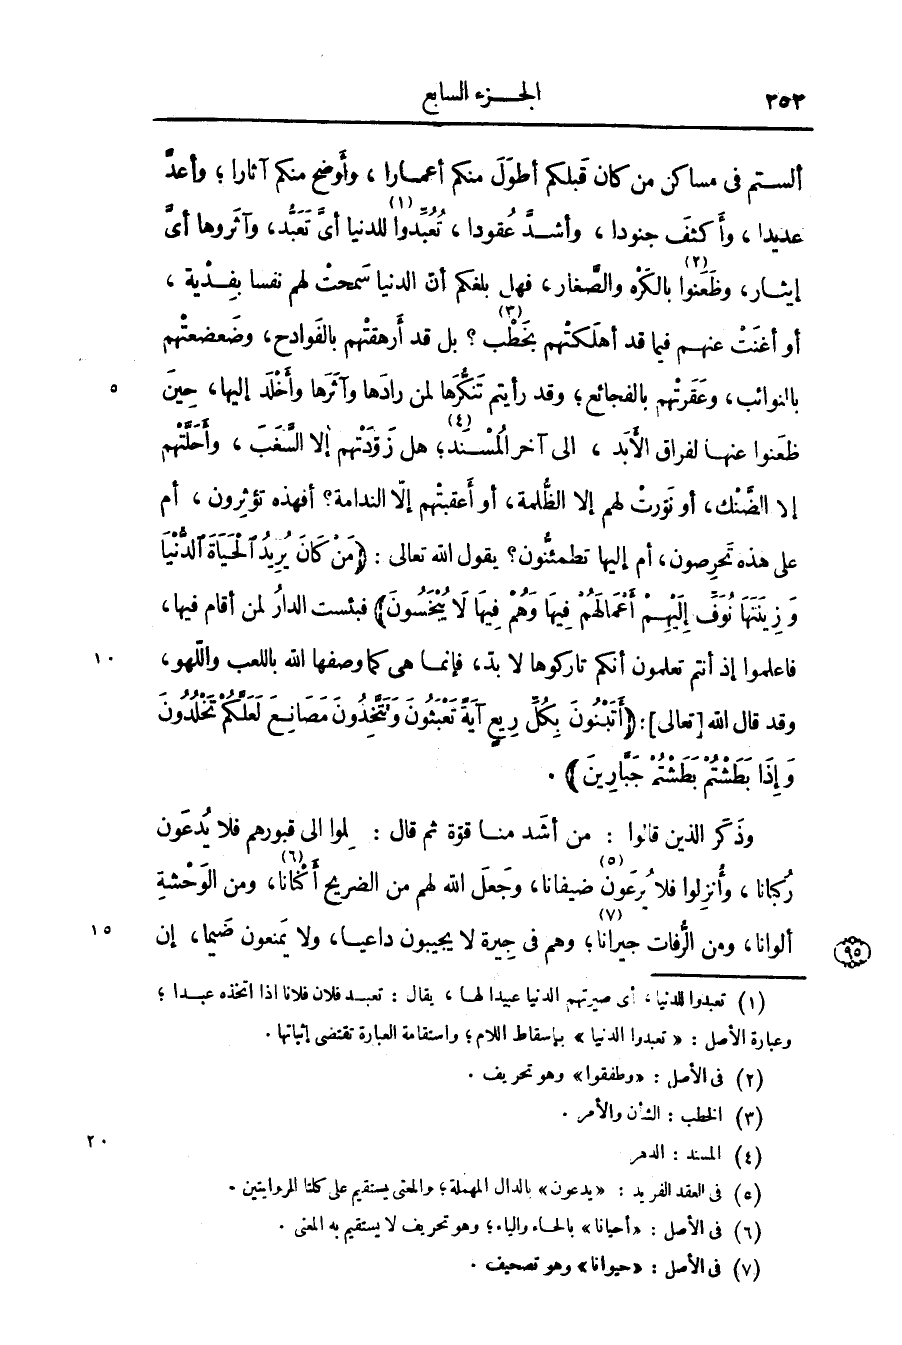 ٢٥٣
الجزء السابع
ألستم فى مساكن من كان قَبلكم أطولَ منكم أعمارا ، وأَوضح منكم آثارا ؛ وأعدَّ
عديدا ، وأَكثفَ جنودا ، وأشدَّ عُقودا ، تُعُبِّدوا (١) للدنيا أىَّ تَعَبُّد، وآثَروها أىَّ
إيثار، وظَعَنوا (٢) بالكَرْه والصَّغار، فهل بلغكم أنّ الدنيا سَمحتْ لهم نفسا بفِدْية ،
أو أغنَتْ عنهم فيما قد أهلكتْهم بخَطْب (٣) ؟ بل قد أَرهقتْهم بالفَوادح، وضَعضعتْهم
٥
بالنوائب، وعَقَرتْهم بالفجائع؛ وقد رأيتم تَنَكُّرَها لمن رادَها وآثَرَها وأَخْلَد إليها، حينَ
ظَعَنوا عنها لفراق الأَبَد ، الى آخر المُسْنَد (٤)؛ هل زَوّدَتْهم إلا السَّغَبَ ، وأَحلَّتْهم
إلا الضَّنْك، أو نَوّرتْ لهم إلا الظُّلمة، أو أعقبتْهم إلّا الندامة؟ أفهذه تؤثِرون ، أم
على هذه تَحرِصون، أم إليها تطمئنُّون؟ يقول الله تعالى : ﴿مَنْ كَانَ يُرِيدُ الْحَيَاةَ الدُّنْيَا
وَزِينَتَهَا نُوَفِّ إِلَيْهِمْ أَعْمَالَهُمْ فِيهَا وَهُمْ فِيهَا لَا يُبْخَسُونَ﴾ فبئست الدارُ لمن أقام فيها،
١٠
فاعلموا إذ أنتم تعلمون أنكم تاركوها لا بدّ، فإنما هى كما وصفها الله باللعب واللّهو،
وقد قال الله [تعالى]: ﴿أَتَبْنُونَ بِكُلِّ رِيعٍ آيَةً تَعْبَثُونَ وَتَتَّخِذُونَ مَصَانِعَ لَعَلَّكُمْ تَخْلُدُونَ
وَإِذَا بَطَشْتُمْ بَطَشْتُمْ جَبَّارِينَ﴾ .
وذَكَر الذين قالوا : من أشدّ منا قوّة ثم قال : لموا الى قبورهم فلا يُدعَون
رُكبانا ، وأُنزِلوا فلا يُرعَون (٥) ضيفانا، وجَعل الله لهم من الضريح أَكْنانا (٦)، ومن الوَحْشةِ
١٥
ألوانا، ومن الرُّفات جيرانا (٧)؛ وهم فى جيرة لا يجيبون داعيا، ولا يَمنعون ضَيما، إن
٩٥
(١) تعبدوا للدنيا ، أى صيرتهم الدنيا عبيدا لها ، يقال : تعبد فلان فلانا اذا اتخذه عبدا ؛
وعبارة الأصل : « تعبدوا الدنيا » بإسقاط اللام؛ واستقامة العبارة تقتضى إثباتها .
(٢) فى الأصل : «وطفقوا» وهو تحريف .
(٣) الخطب : الشأن والأمر .
٢٠
(٤) المسند : الدهر
(٥) فى العقد الفريد : «يدعون» بالدال المهملة ؛ والمعنى يستقيم على كلتا الروايتين .
(٦) فى الأصل : «أحيانا» بالحاء والياء؛ وهو تحريف لا يستقيم به المعنى .
(٧) فى الأصل : «حيوانا» وهو تصحيف .